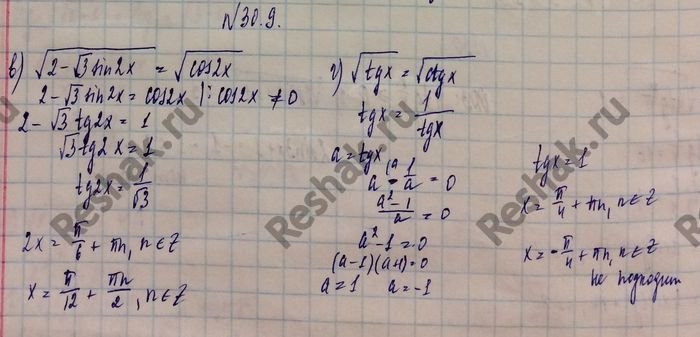 №30.9.
в) √(2-√3 sin2x) = √(cos2x)
2-√3 sin2x = cos2x |: cos2x ≠ 0
2-√3 tg2x = 1
√3 tg2x = 1
tg2x = 1/√3
2x = π/6 + πn, n∈Z
x = π/12 + πn/2, n∈Z
г) √tgx = √ctgx
tgx = 1/tgx
a = tgx
a - 1/a = 0
(a²-1)/a = 0
a²-1 = 0
(a-1)(a+1) = 0
a = 1 a = -1
tgx = 1
x = π/4 + πn, n∈Z
x = -π/4 + πn, n∈Z
не подходит
Reshak.ru
Reshak.ru
Reshak.ru
Reshak.ru